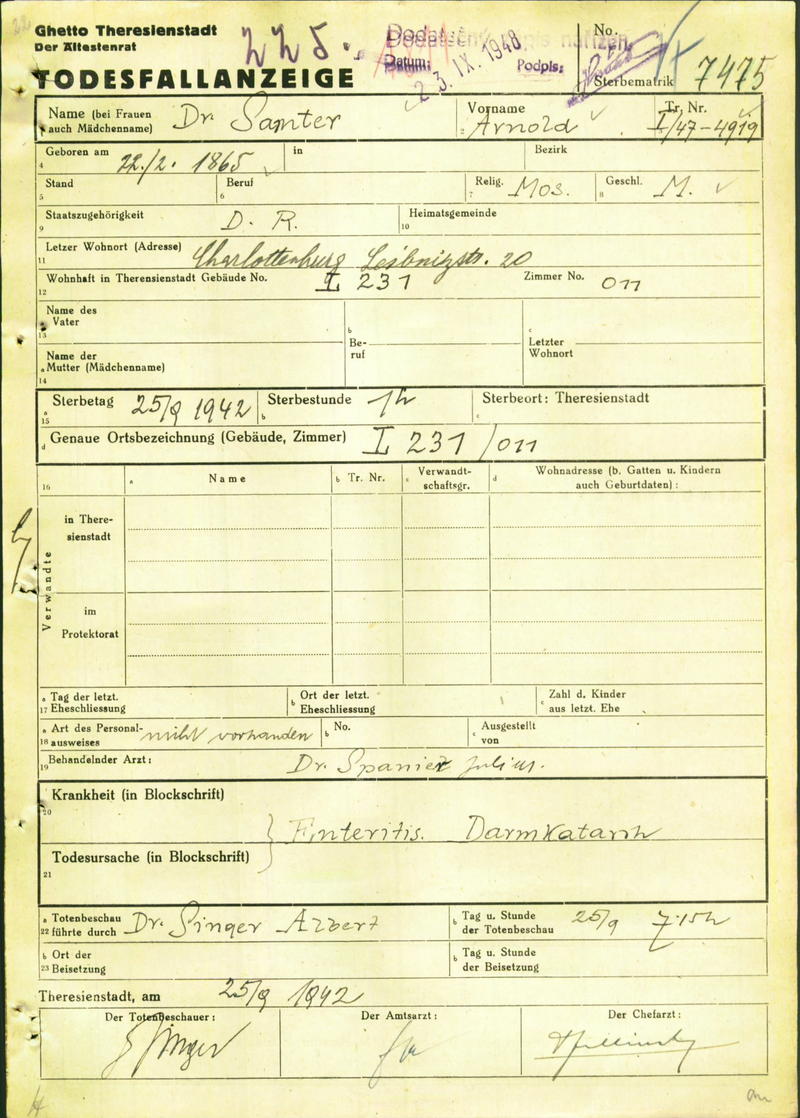 Ghetto Theresienstadt
Der Ältestenrat
TODESFALLANZEIGE
225.
Datum:
23. IX. 1948
Podpis:
No.
Sterbematrik 7475
Name (bei Frauen auch Mädchenname) Dr. Samter
Vorname Arnold
2
Tr. Nr. I/47-4919
Geboren am 22./2. 1865
4
in
Bezirk
Stand
5
Beruf
6
Relig. Mos.
7
Geschl. M.
8
Staatszugehörigkeit D. R.
9
Heimatsgemeinde
10
Letzer Wohnort (Adresse) Charlottenburg Leibnizstr. 20
11
Wohnhaft in Theresienstadt Gebäude No. I 231
12
Zimmer No. 011
Name des Vater
13
Name der Mutter (Mädchenname)
14
b
Be-
ruf
c
Letzter
Wohnort
a
15
Sterbetag 25/9 1942
Sterbestunde 1h
b
Sterbeort: Theresienstadt
c
d Genaue Ortsbezeichnung (Gebäude, Zimmer) I 231/011
16
a Name
b Tr. Nr.
c Verwandt-
schaftsgr.
d Wohnadresse (b. Gatten u. Kindern
auch Geburtdaten):
Verwandte
in There-
sienstadt
im
Protektorat
a Tag der letzt.
17 Eheschliessung
b Ort der letzt.
Eheschliessung
c Zahl d. Kinder
aus letzt. Ehe
a Art des Personal-
18 ausweises nicht vorhanden
b No.
c Ausgestellt
von
19 Behandelnder Arzt: Dr. Spanier Julius.
Krankheit (in Blockschrift)
20
Enteritis. Darmkatarrh
Todesursache (in Blockschrift)
21
a Totenbeschau
22 führte durch Dr. Singer Albert
b Tag u. Stunde
der Totenbeschau 25/9 7.15h
b Ort der
23 Beisetzung
b Tag u. Stunde
der Beisetzung
Theresienstadt, am 25/9 1942
Der Totenbeschauer:
Der Amtsarzt:
Der Chefarzt:
Singer